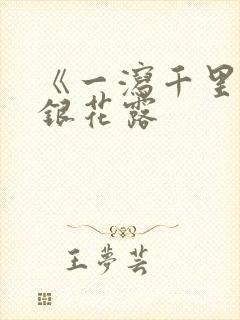 《一瀉千里
銀花露
王夢芸